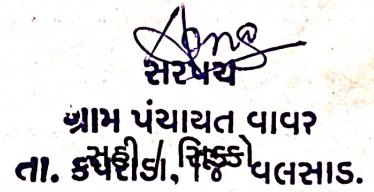 સરપંચ
ગ્રામ પંચાયત વાવર
સહી / સિક્કો
તા. કપરાડા, જિ વલસાડ.